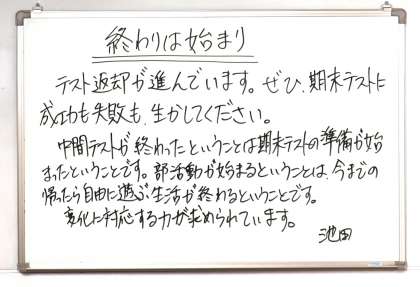 終わりは始まり
テスト返却が進んでいます。ぜひ、期末テストに
成功も失敗も、生かしてください。
中間テストが終わったということは期末テストの準備が始
まったということです。部活動が始まるということは、今までの
帰ったら自由に遊ぶ生活が終わるということです。
変化に対応する力が求められています。
池田